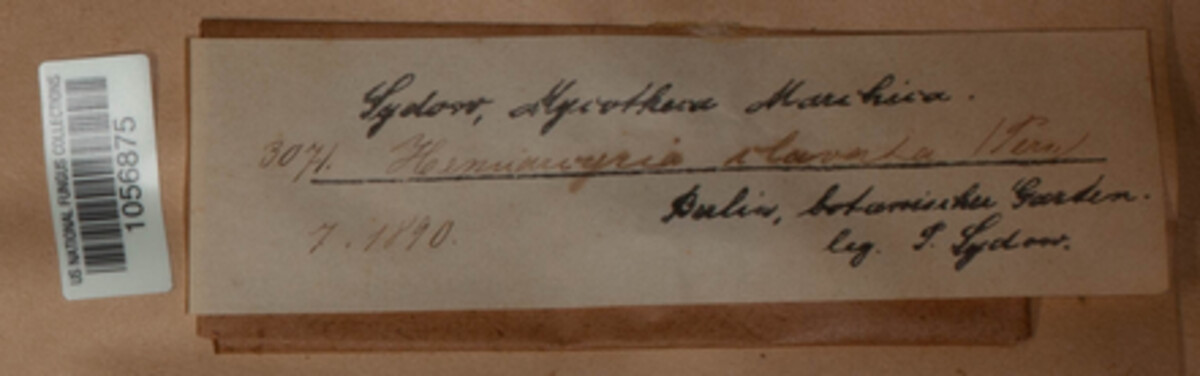 US NATIONAL FUNGUS COLLECTIONS
1056875
Sydow, Mycotheca Marchica.
3071. Hemiarcyria clavata (Pers.)
7. 1890.
Berlin, botanischer Garten.
leg. P. Sydow.